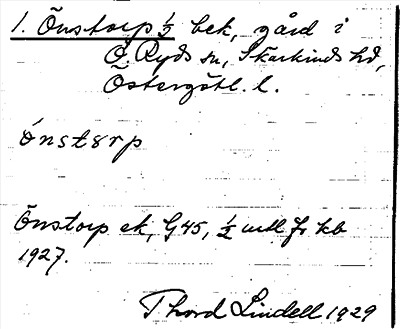 1. Önstorp 1/3 bek, gård i
Ö. Ryds sn, Skärkinds hd,
Östergötl. l.
önstørp
Önstorp ek, G45, 1/2 mtl fr kb
1927.
Thord Lindell 1929